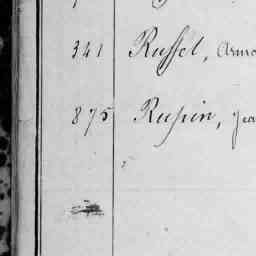 341 Russel, Arma
875 Rupin, Jea